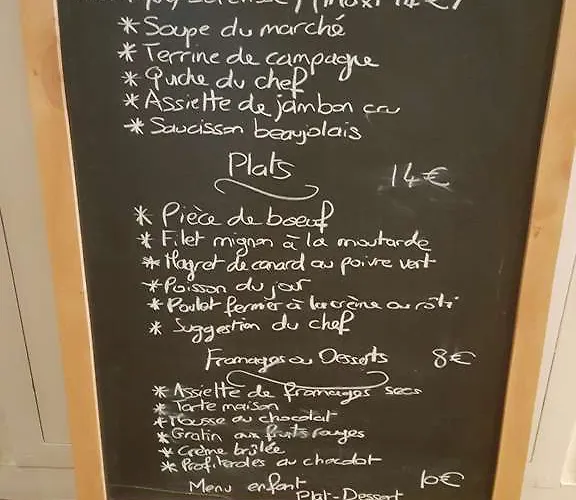 * Soupe du marché
* Terrine de campagne
* Quche du chef
* Assiette de jambon cru
* Saucisson beaujolais
Plats 14€
* Pièce de boeuf
* Filet mignon à la moutarde
* Magret de canard au poivre vert
* Poisson du jour
* Poulet fermier à la crème ou rôti
* Suggestion du chef
Fromages ou Desserts 8€
* Assiette de fromages secs
* Tarte maison
* Mousse au chocolat
* Gratin aux fruits rouges
* Crème brûlée
* Profiteroles au chocolat
Menu enfant 10€
Plat-Dessert